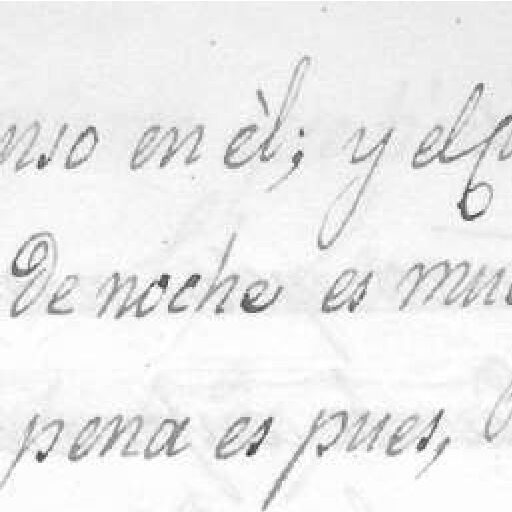 en èl; y el
De noche es
pena es pues,